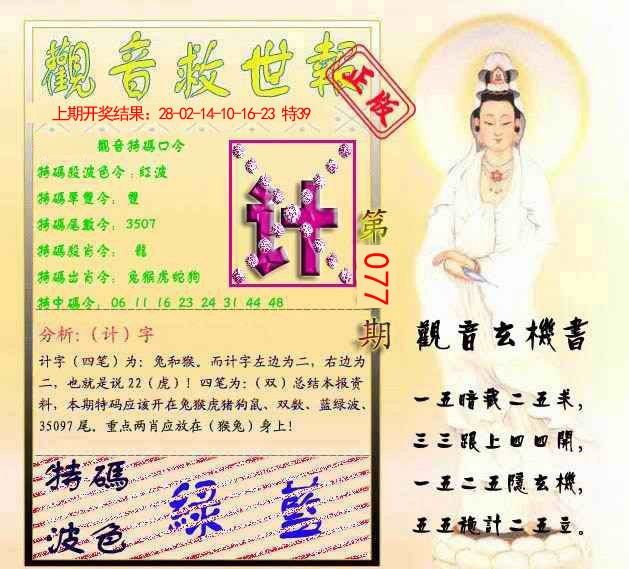 觀音救世報
正版
上期开奖结果：28-02-14-10-16-23 特39
觀音特碼口令
特碼殺波色令：紅波
特碼單雙令： 雙
特碼尾數令： 3507
特碼殺肖令： 龍
特碼出肖令： 兔猴虎蛇狗
特中碼令： 06 11 16 23 24 31 44 48
计
第
077
期
分析:（计）字
计字（四笔）为：兔和猴。而计字左边为二，右边为
二，也就是说22（虎）！四笔为：（双）总结本报资
料，本期特码应该开在兔猴虎猪狗鼠、双数、蓝绿波、
35097尾。重点两肖应放在（猴兔）身上！
特碼
波色
綠 藍
觀音玄機書
一五暗藏二五来，
三三跟上四四開，
一五二五隱玄機，
五五施計二五豆。